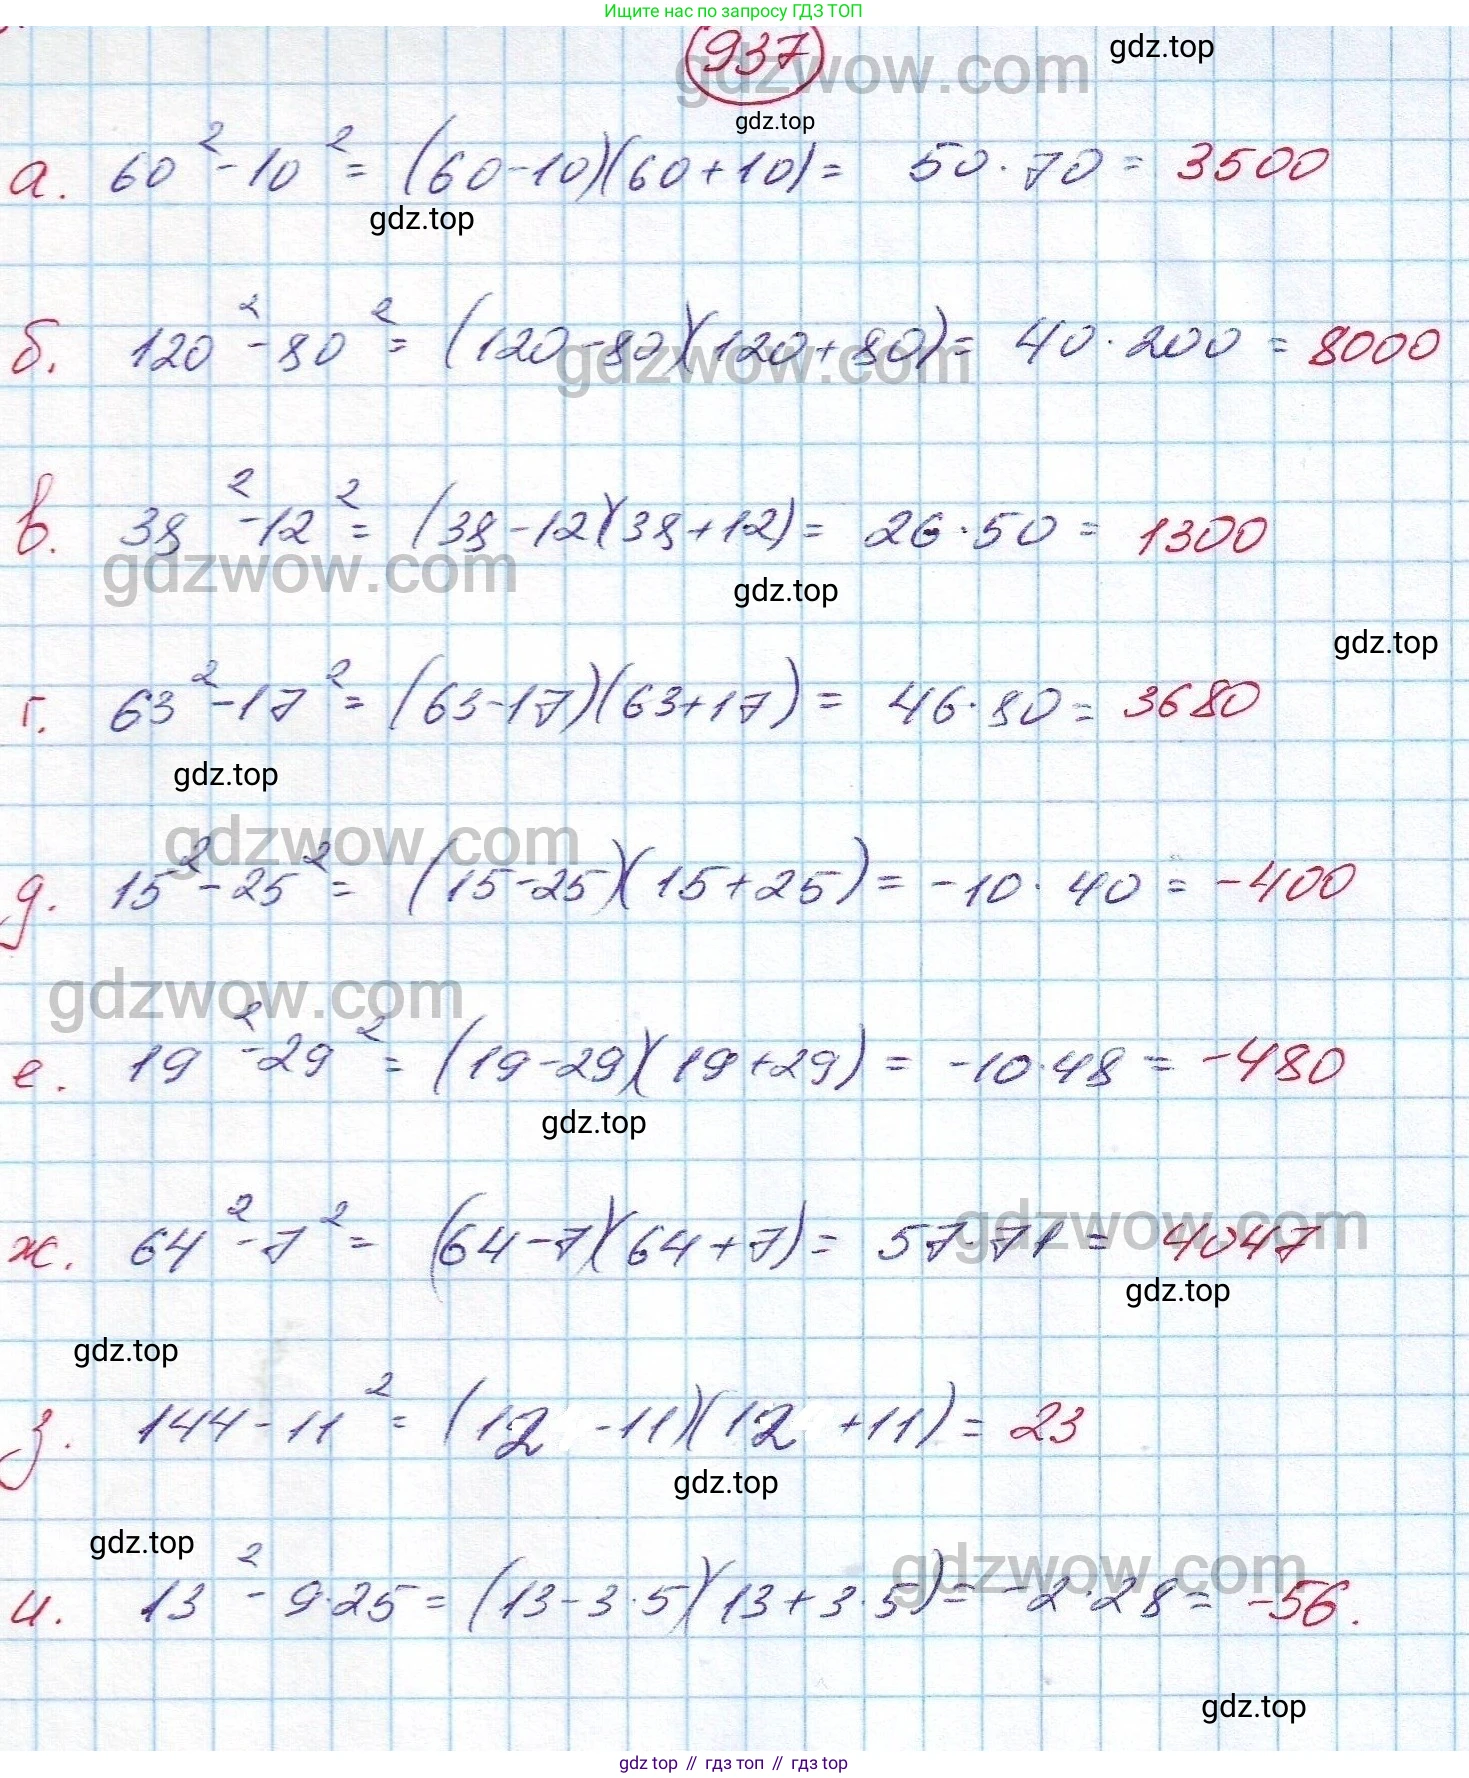 Ищите нас по запросу ГДЗ ТОП
937
gdzwow.com
gdz.top
gdz.top
а. 60² - 10² = (60-10)(60+10) = 50·70 = 3500
gdz.top
б. 120² - 80² = (120-80)(120+80) = 40·200 = 8000
gdzwow.com
в. 38² - 12² = (38-12)(38+12) = 26·50 = 1300
gdzwow.com
gdz.top
gdz.top
г. 63² - 17² = (63-17)(63+17) = 46·80 = 3680
gdz.top
gdzwow.com
д. 15² - 25² = (15-25)(15+25) = -10·40 = -400
gdzwow.com
е. 19² - 29² = (19-29)(19+29) = -10·48 = -480
gdz.top
gdzwow.com
ж. 64² - 7² = (64-7)(64+7) = 57·71 = 4047
gdz.top
gdz.top
з. 144 - 11² = (12 - 11)(12 + 11) = 23
gdz.top
gdz.top
gdzwow.com
и. 13² - 9·25 = (13-3·5)(13+3·5) = -2·28 = -56.
gdz.top
gdz top // гдз топ // гдз top